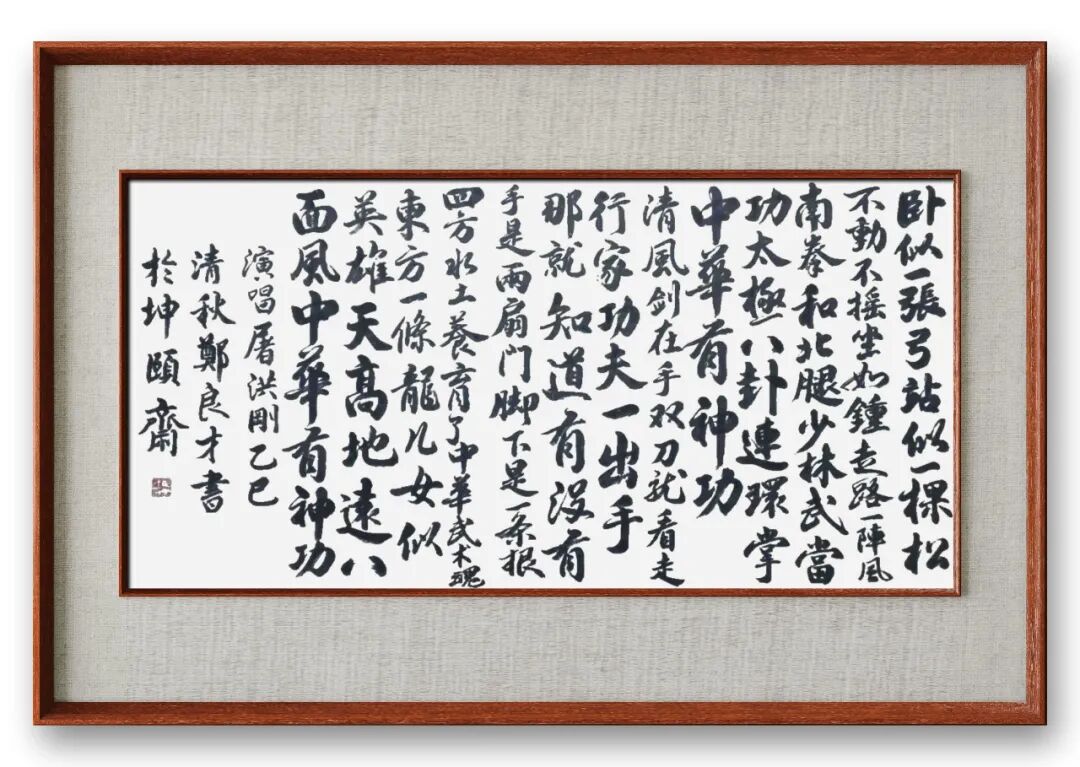 卧似一張弓站似一棵松
不動不摇坐如鍾走路一陣風
南拳和北腿少林武當
功太極八卦連環掌
中華有神功
清風劍在手双刀就看走
行家功夫一出手
那就知道有没有
手是两扇门脚下是一条根
四方水土养育了中華武术魂
東方一條龍儿女似
英雄天髙地遠八
面風中華有神功
演唱屠洪剛乙巳
清秋鄭良才書
於坤頤齋